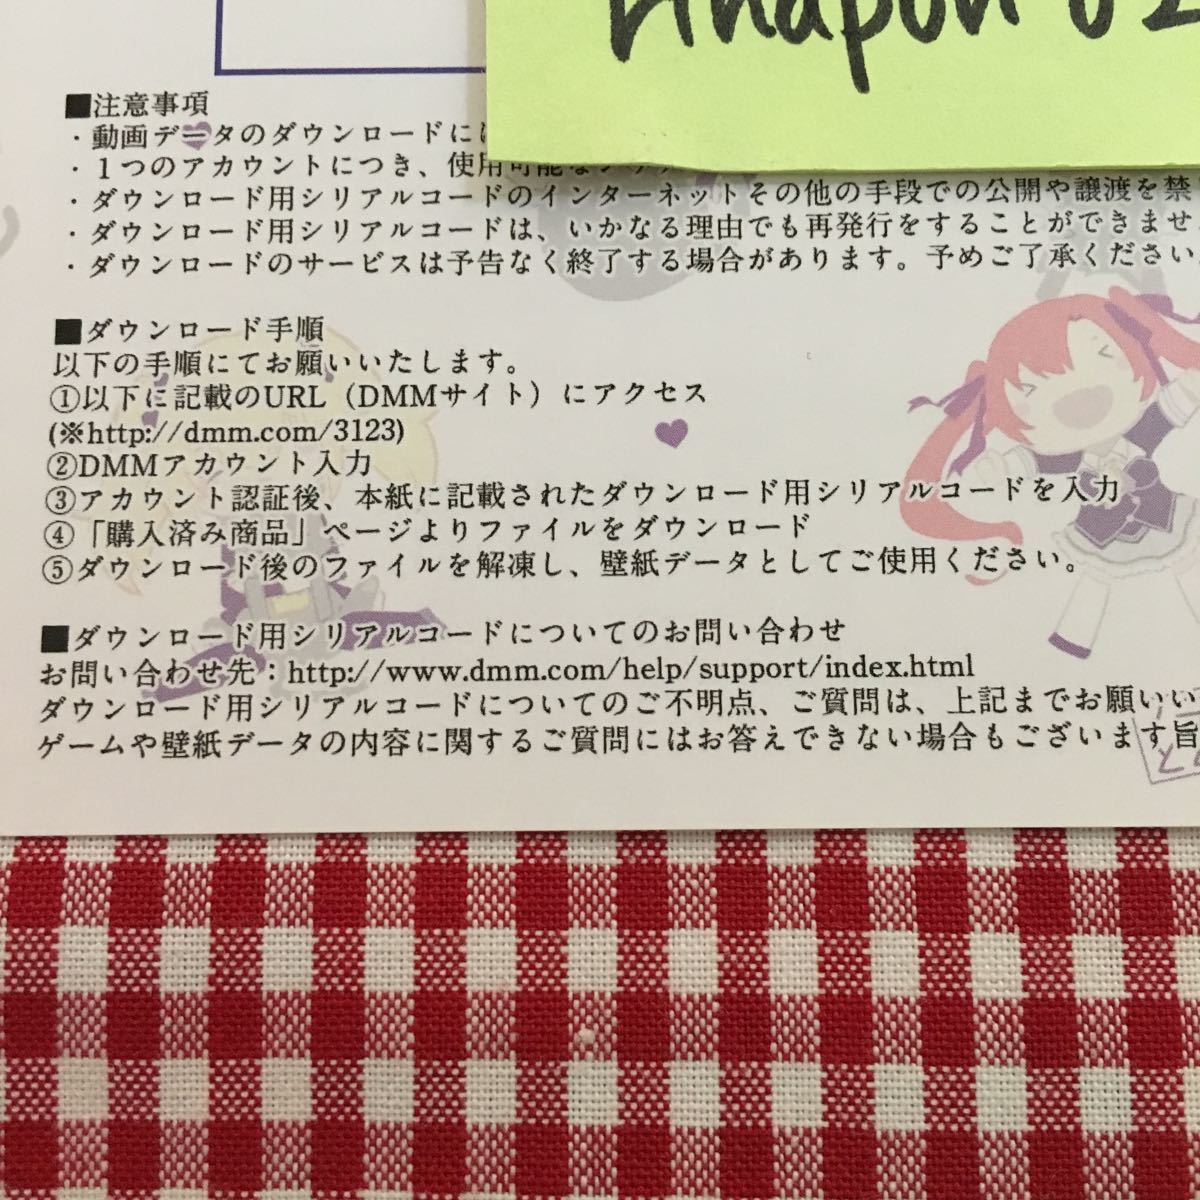 ■注意事項
・動画データのダウンロードには
・1つのアカウントにつき、使用可能な
・ダウンロード用シリアルコードのインターネットその他の手段での公開や譲渡を禁
・ダウンロード用シリアルコードは、いかなる理由でも再発行をすることができませ
・ダウンロードのサービスは予告なく終了する場合があります。予めご了承ください。
■ダウンロード手順
以下の手順にてお願いいたします。
①以下に記載のURL（DMMサイト）にアクセス
(※http://dmm.com/3123)
②DMMアカウント入力
③アカウント認証後、本紙に記載されたダウンロード用シリアルコードを入力
④「購入済み商品」ページよりファイルをダウンロード
⑤ダウンロード後のファイルを解凍し、壁紙データとしてご使用ください。
■ダウンロード用シリアルコードについてのお問い合わせ
お問い合わせ先：http://www.dmm.com/help/support/index.html
ダウンロード用シリアルコードについてのご不明点、ご質問は、上記までお願いい
ゲームや壁紙データの内容に関するご質問にはお答えできない場合もございます旨